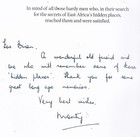 In mind of all those hardy men who, in their search
for the secrets of East Africa's hidden places,
reached them and were satisfied.
Brian,
A wonderful old friend and
one who will remember some of these
'hidden places'. Thank you for some
great long ago memories.
Very best wishes,
Monty